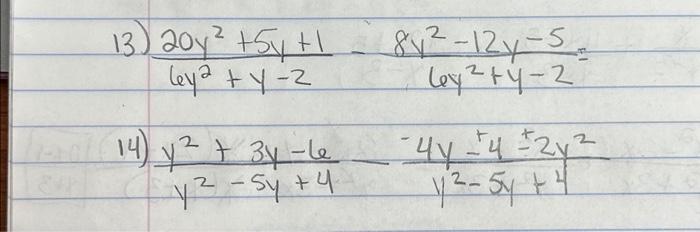 13) 20y² + 5y + 1 / 6y² + y - 2 - 8y² - 12y - 5 / 6y² + y - 2 =
14) y² + 3y - 6 / y² - 5y + 4 - -4y ± 4 ± 2y² / y² - 5y + 4